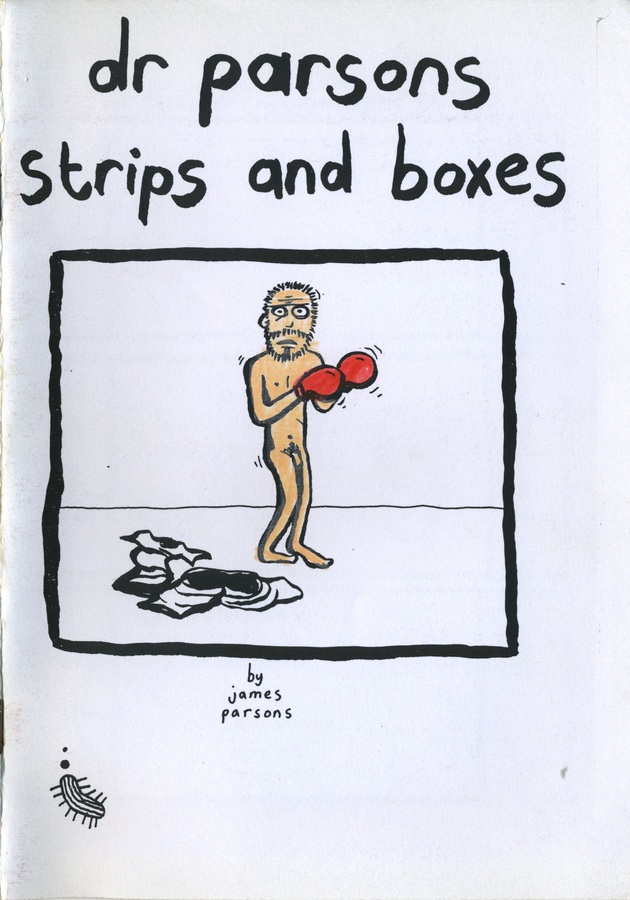 dr parsons
strips and boxes
by
james
parsons